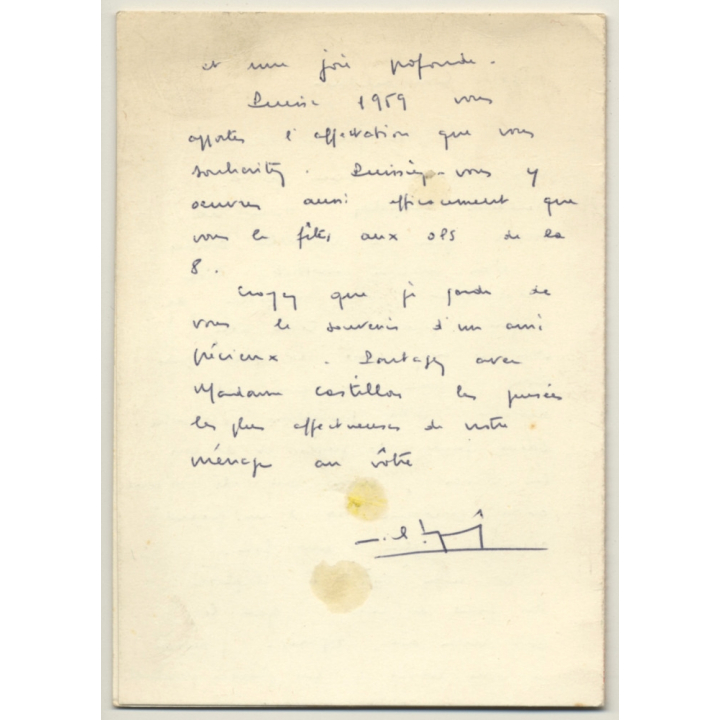 et une joie profonde.
Puisse 1959 vous
apporter l'affectation que vous
souhaitez. Puissiez-vous y
oeuvrer aussi efficacement que
vous le fîtes aux OPS de la
8.
Croyez que je garde de
vous le souvenir d'un ami
précieux. Partagez avec
Madame Castillon les pensées
les plus affectueuses de notre
ménage au vôtre